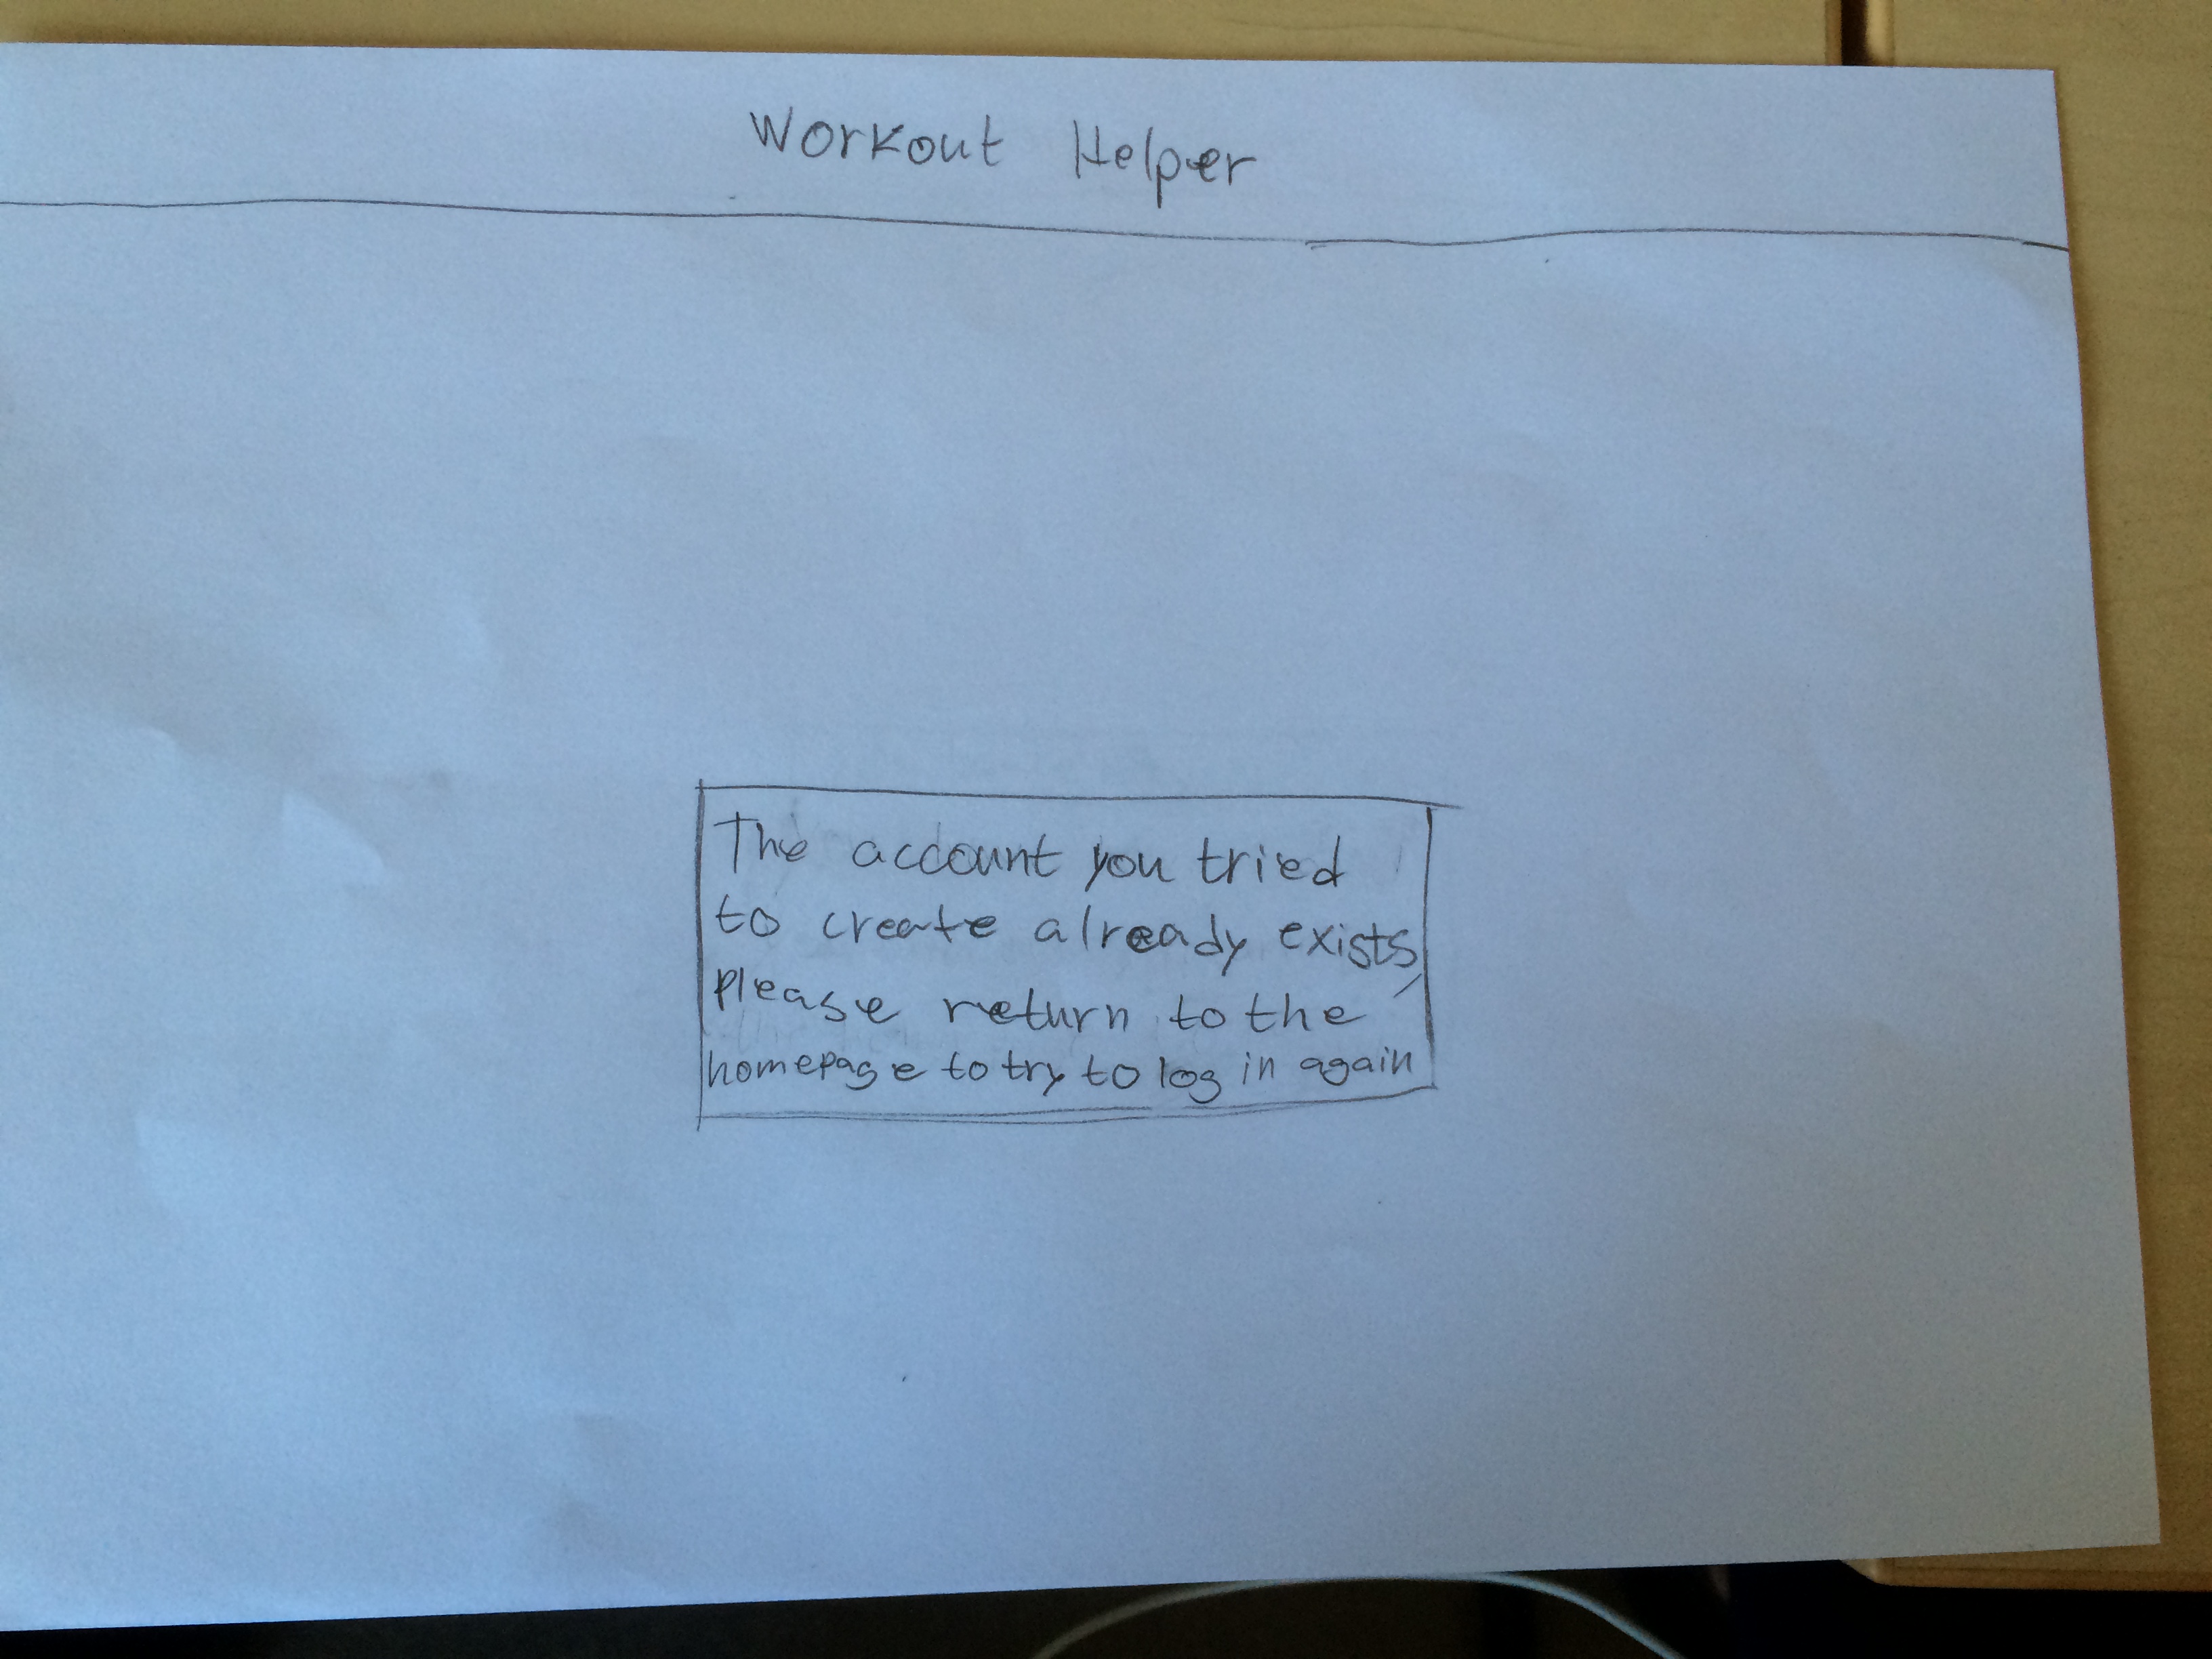 Workout Helper
The account you tried
to create already exists,
please return to the
homepage to try to log in again